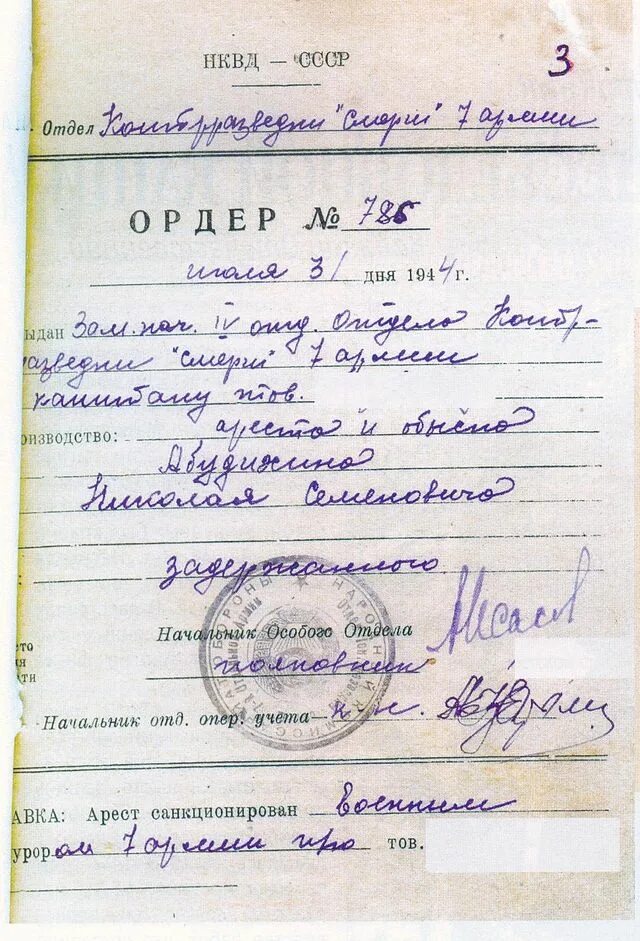 3
НКВД — СССР
Отдел Контрразведки "Смерш" 7 армии
ОРДЕР № 785
июля 31 дня 1944 г.
ыдан Зам. нач. IV отд. Отдела Контр-
азведки "Смерш" 7 армии
капитану тов.
оизводство: ареста и обыска
Абудихина
Николая Семеновича
задержанного
Начальник Особого Отдела
полковник
Начальник отд. опер. учета —
АВКА: Арест санкционирован Военным
урором 7 армии тов.